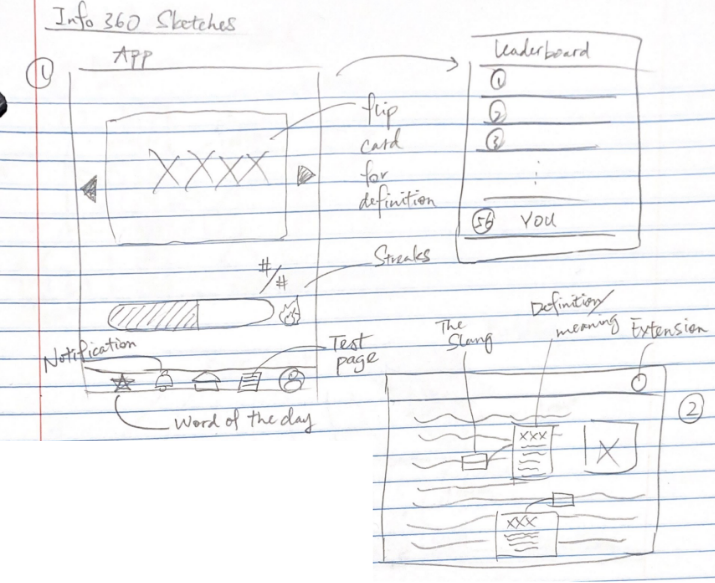 Info 360 Sketches
① App
XXXX
flip
card
for
definition
#/#
Streaks
Notification
Test
page
Word of the day
Leaderboard
①
②
③
⋮
56 YOU
②
The
Slang
Definition/
meaning
Extension
XXX
X
XXX